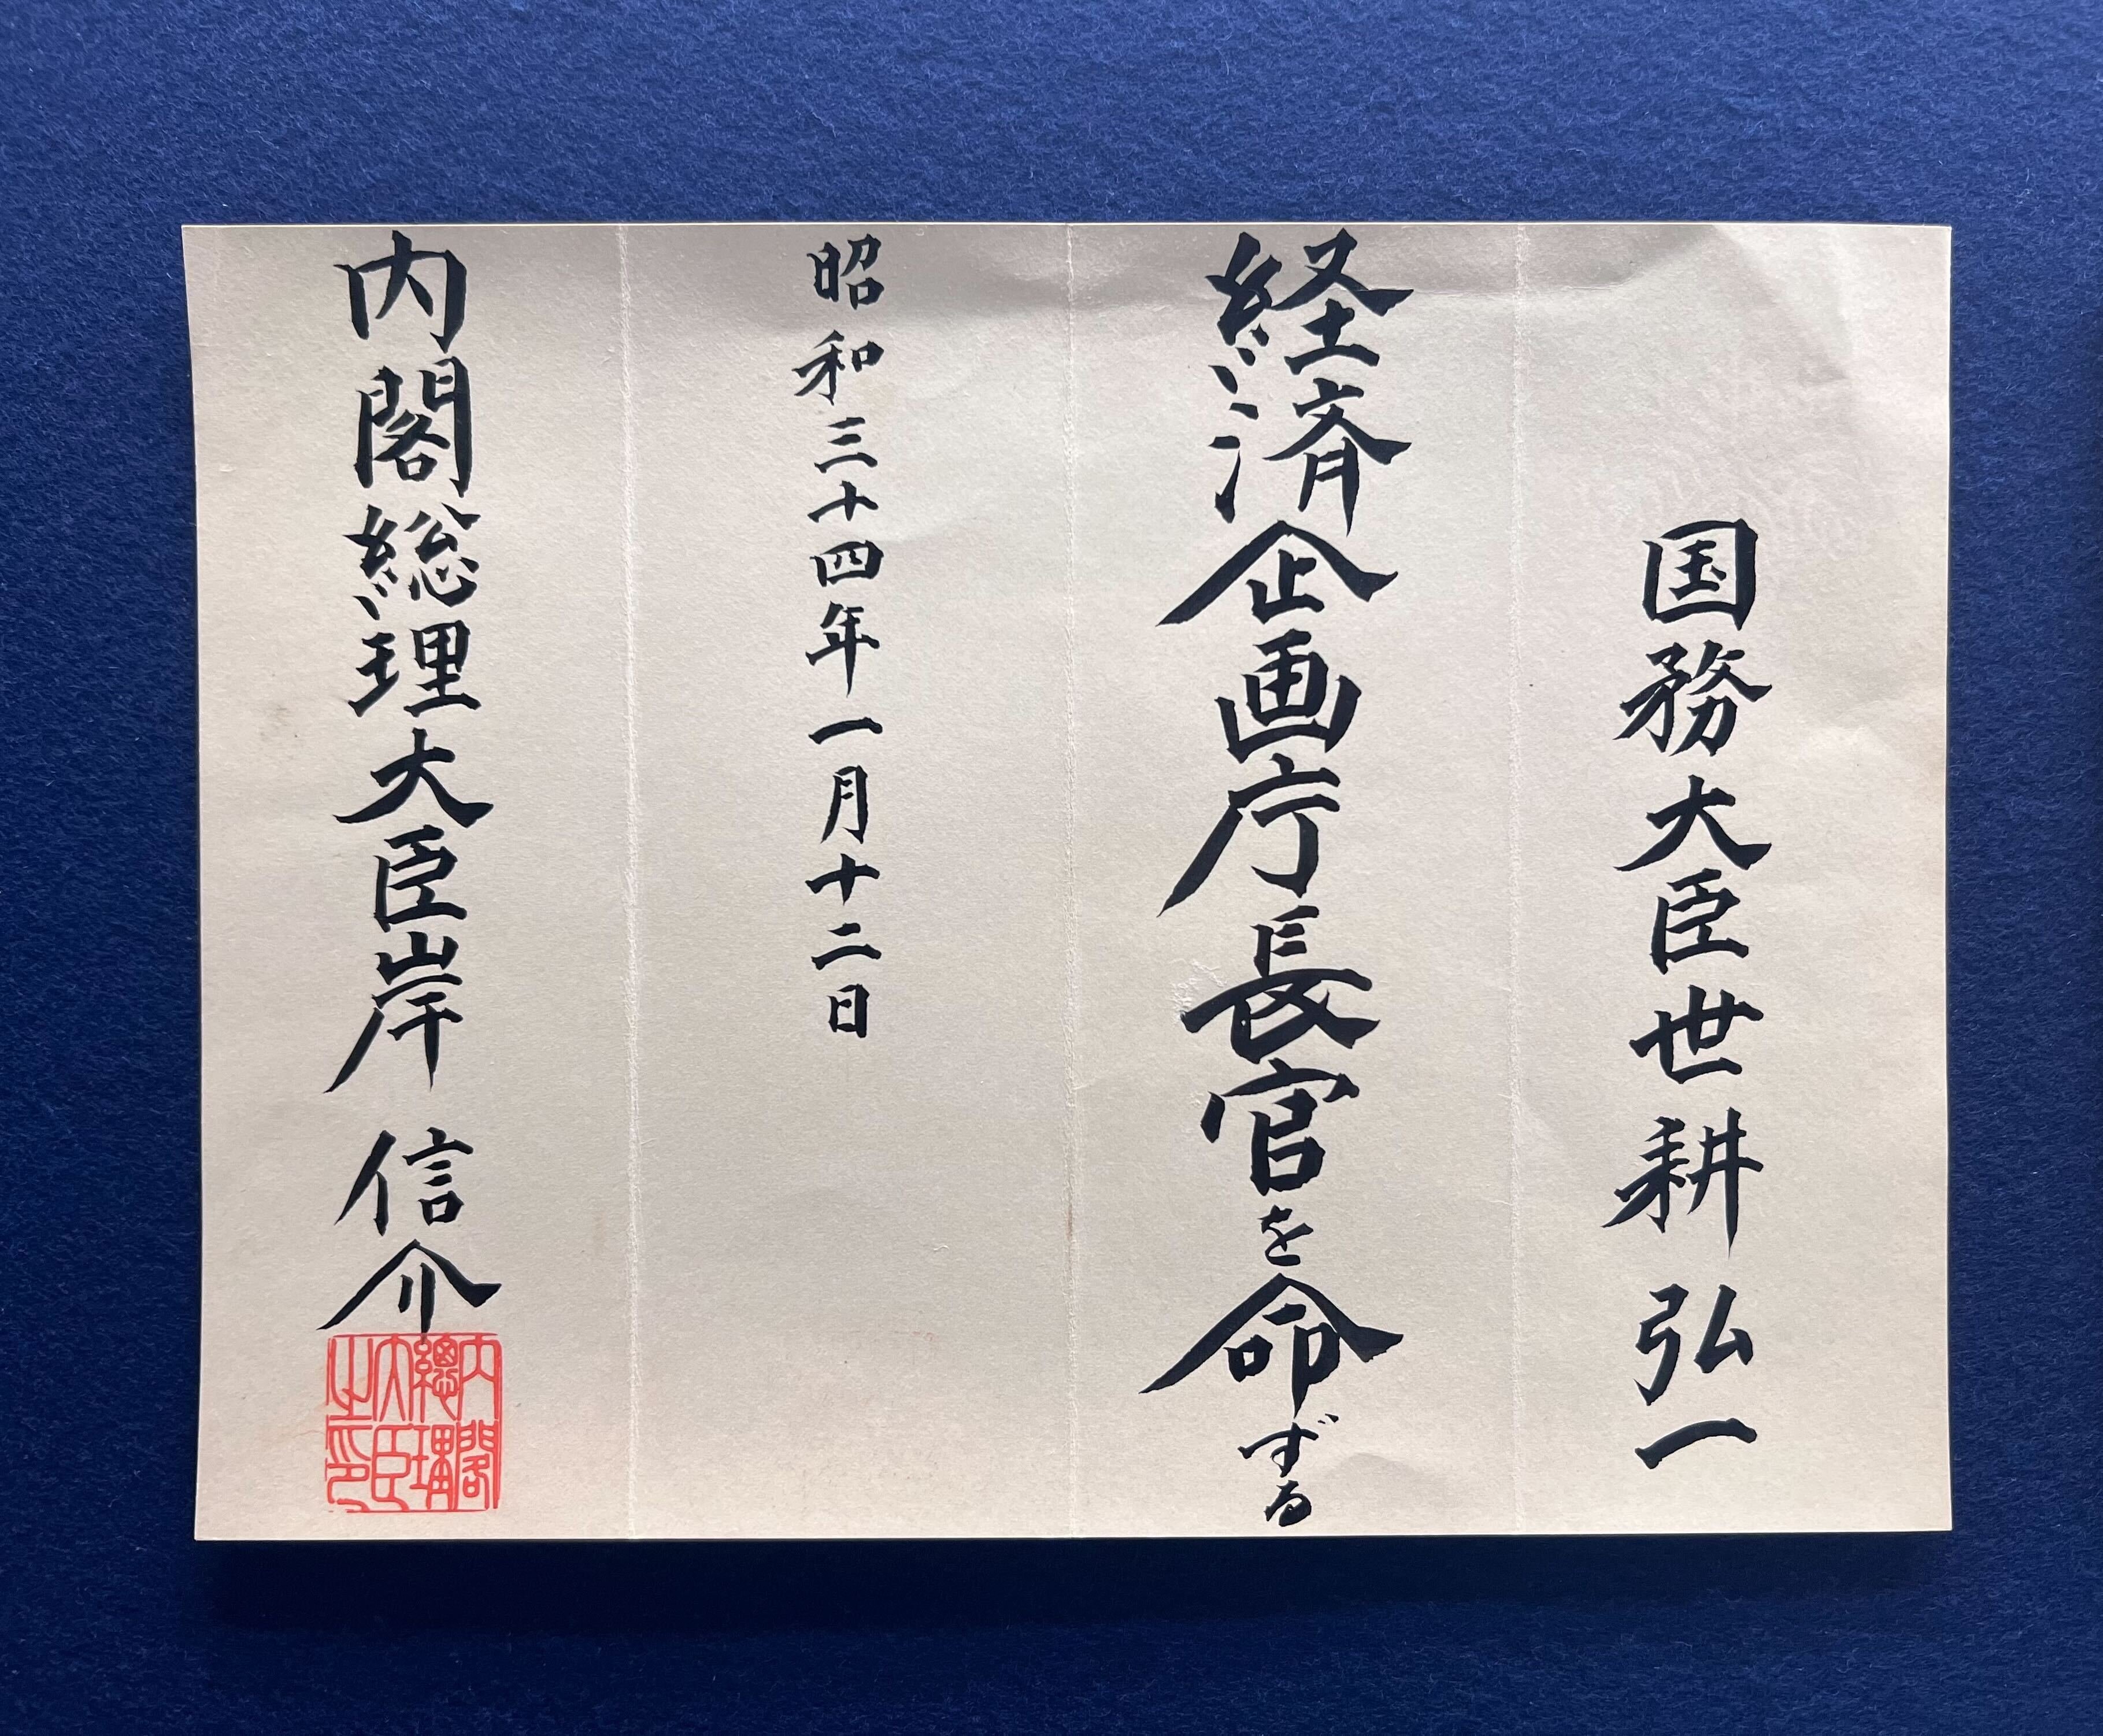 国務大臣世耕弘一
経済企画庁長官を命ずる
昭和三十四年一月十二日
内閣総理大臣岸信介
内閣
總理
大臣
之印